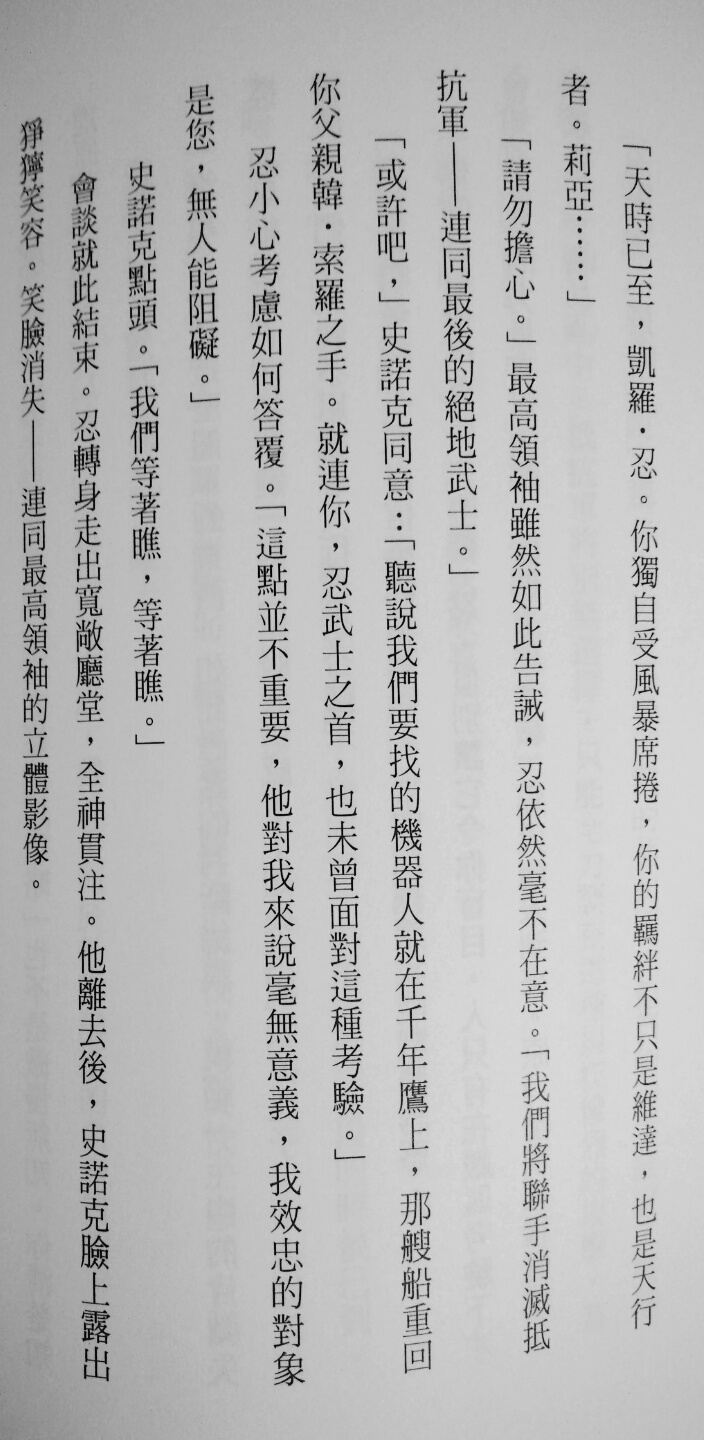 「天時已至，凱羅・忍。你獨自受風暴席捲，你的羈絆不只是維達，也是天行
者。莉亞……」
「請勿擔心。」最高領袖雖然如此告誡，忍依然毫不在意。「我們將聯手消滅抵
抗軍——連同最後的絕地武士。」
「或許吧，」史諾克同意：「聽說我們要找的機器人就在千年鷹上，那艘船重回
你父親韓・索羅之手。就連你，忍武士之首，也未曾面對這種考驗。」
忍小心考慮如何答覆。「這點並不重要，他對我來說毫無意義，我效忠的對象
是您，無人能阻礙。」
史諾克點頭。「我們等著瞧，等著瞧。」
會談就此結束。忍轉身走出寬敞廳堂，全神貫注。他離去後，史諾克臉上露出
猙獰笑容。笑臉消失——連同最高領袖的立體影像。